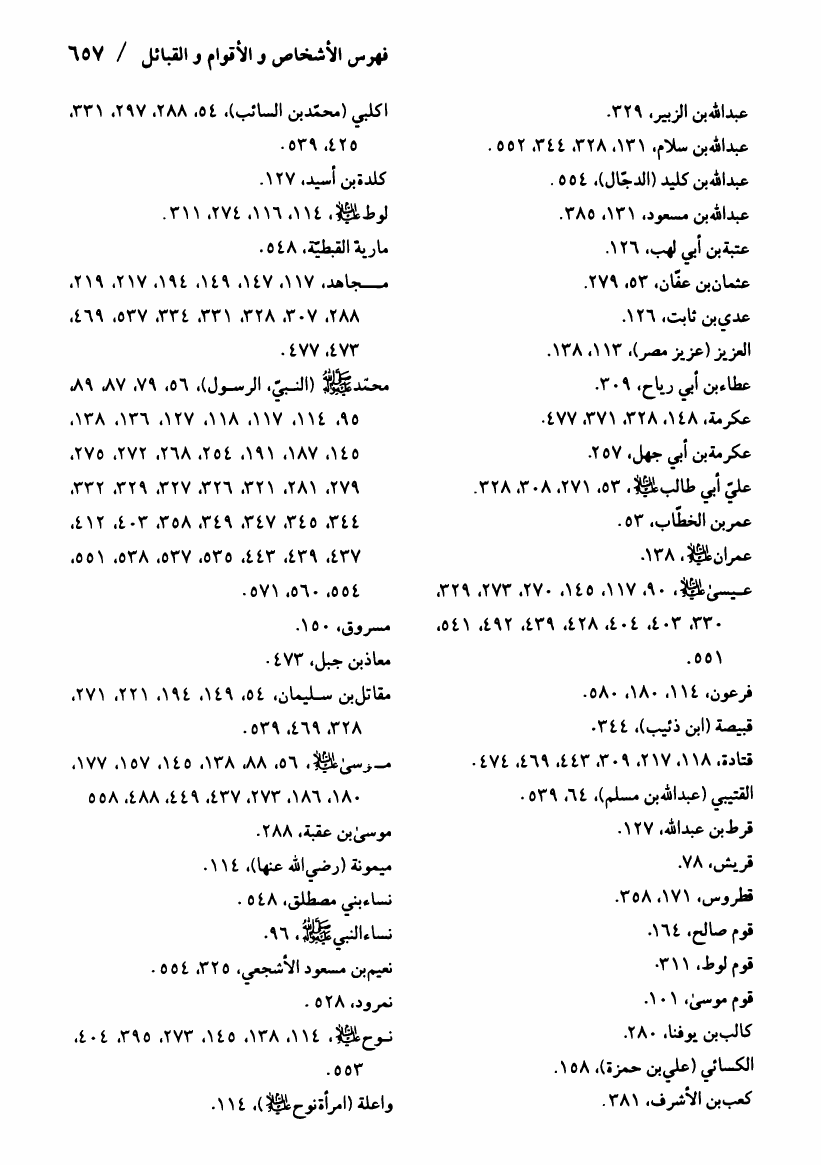 فهرس الأشخاص و الأقوام و القبائل / ٦٥٧
عبداللهبن الزبير، ٣٢٩.
عبداللهبن سلام، ١٣١، ٣٢٨، ٣٤٤، ٥٥٢.
عبداللهبن كليد (الدجّال)، ٥٥٤.
عبداللهبن مسعود، ١٣١، ٣٨٥.
عتبةبن أبي لهب، ١٢٦.
عثمانبن عفّان، ٥٣، ٢٧٩.
عديبن ثابت، ١٢٦.
العزيز (عزيز مصر)، ١١٣، ١٣٨.
عطاءبن أبي رياح، ٣٠٩.
عكرمة، ١٤٨، ٣٢٨، ٣٧١، ٤٧٧.
عكرمةبن أبي جهل، ٢٥٧.
عليّ أبي طالب؏، ٥٣، ٢٧١، ٣٠٨، ٣٢٨.
عمربن الخطّاب، ٥٣.
عمران؏، ١٣٨.
عـيسىٰ؏، ٩٠، ١١٧، ١٤٥، ٢٧٠، ٢٧٣، ٣٢٩،
٣٣٠، ٤٠٣، ٤٠٤، ٤٢٨، ٤٣٩، ٤٩٢، ٥٤١،
٥٥١.
فرعون، ١١٤، ١٨٠، ٥٨٠.
قبيصة (ابن ذئيب)، ٣٤٤.
قتادة، ١١٨، ٢١٧، ٣٠٩، ٤٤٣، ٤٦٩، ٤٧٤.
القتيبي (عبداللهبن مسلم)، ٦٤، ٥٣٩.
قرطبن عبدالله، ١٢٧.
قريش، ٧٨.
قطروس، ١٧١، ٣٥٨.
قوم صالح، ١٦٤.
قوم لوط، ٣١١.
قوم موسىٰ، ١٠١.
كالببن يوفنا، ٢٨٠.
الكسائي (عليبن حمزة)، ١٥٨.
كعببن الأشرف، ٣٨١.
اكلبي (محمّدبن السائب)، ٥٤، ٢٨٨، ٢٩٧، ٣٣١،
٤٢٥، ٥٣٩.
كلدةبن أسيد، ١٢٧.
لوط؏، ١١٤، ١١٦، ٢٧٤، ٣١١.
مارية القبطيّة، ٥٤٨.
مـــجاهد، ١١٧، ١٤٧، ١٤٩، ١٩٤، ٢١٧، ٢١٩،
٢٨٨، ٣٠٧، ٣٢٨، ٣٣١، ٣٣٤، ٥٣٧، ٤٦٩،
٤٧٣، ٤٧٧.
محمّدﷺ (النـبيّ، الرسـول)، ٥٦، ٧٩، ٨٧، ٨٩،
٩٥، ١١٤، ١١٧، ١١٨، ١٢٧، ١٣٦، ١٣٨،
١٤٥، ١٨٧، ١٩١، ٢٥٤، ٢٦٨، ٢٧٢، ٢٧٥،
٢٧٩، ٢٨١، ٣٢١، ٣٢٦، ٣٢٧، ٣٢٩، ٣٣٢،
٣٤٤، ٣٤٥، ٣٤٧، ٣٤٩، ٣٥٨، ٤٠٣، ٤١٢،
٤٣٧، ٤٣٩، ٤٤٣، ٥٣٥، ٥٣٧، ٥٣٨، ٥٥١،
٥٥٤، ٥٦٠، ٥٧١.
مسروق، ١٥٠.
معاذبن جبل، ٤٧٣.
مقاتلبن سـليمان، ٥٤، ١٤٩، ١٩٤، ٢٢١، ٢٧١،
٣٢٨، ٤٦٩، ٥٣٩.
مـوسىٰ؏، ٥٦، ٨٨، ١٣٨، ١٤٥، ١٥٧، ١٧٧،
١٨٠، ١٨٦، ٢٧٣، ٤٣٧، ٤٤٩، ٤٨٨، ٥٥٨
موسىٰبن عقبة، ٢٨٨.
ميمونة (رضيالله عنها)، ١١٤.
نساءبني مصطلق، ٥٤٨.
نساءالنبيﷺ، ٩٦.
نعيمبن مسعود الأشجعي، ٣٢٥، ٥٥٤.
نمرود، ٥٢٨.
نـوح؏، ١١٤، ١٣٨، ١٤٥، ٢٧٣، ٣٩٥، ٤٠٤،
٥٥٣.
واعلة (امرأةنوح؏)، ١١٤.